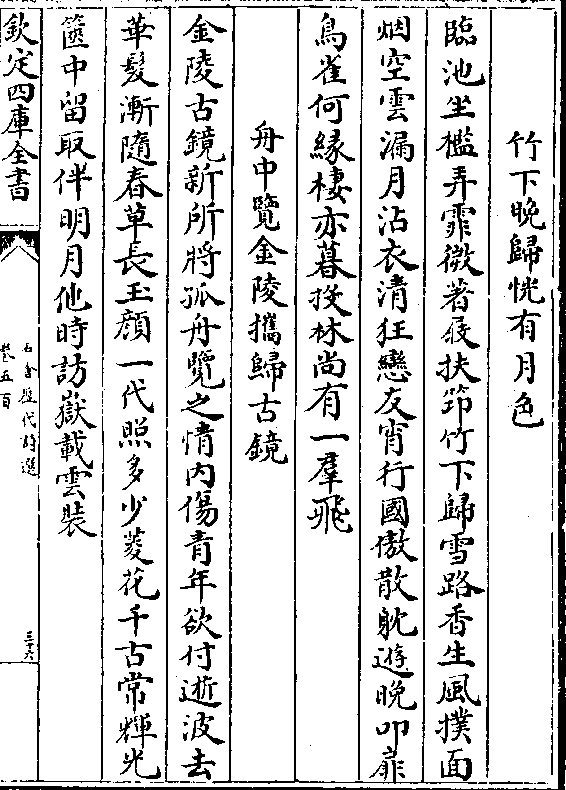 竹下晚歸恍有月色
臨池坐檻弄霏微著屐扶笻竹下歸雪路香生風撲面
烟空雲漏月沾衣清狂戀友宵行國傲散躭遊晚叩扉
鳥雀何緣棲亦暮投林尚有一羣飛
舟中覽金陵攜歸古鏡
金陵古鏡新所將孤舟覽之情內傷青年欲付逝波去
華髮漸隨春草長玉顔一代照多少菱花千古常輝光
篋中留取伴明月他時訪嶽載雲裝
欽定四庫全書
石倉歷代詩選
卷五百
三十六